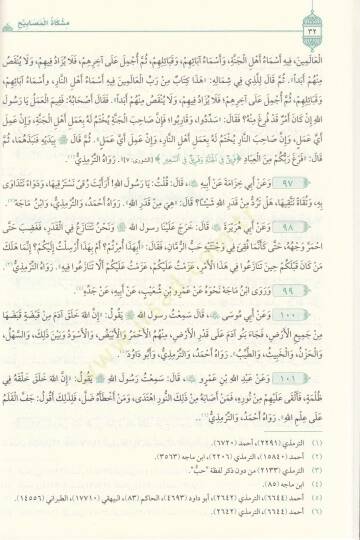 مشكاة المصابيح
٣٢
العَالَمِينَ، فِيهِ أَسْمَاءُ أَهْلِ الجَنَّةِ، وَأَسْمَاءُ آبَائِهِمْ، وَقَبَائِلِهِمْ، ثُمَّ أُجْمِلَ عَلَى آخِرِهِمْ، فَلَا يُزَادُ فِيهِمْ، وَلَا يُنْقَصُ
مِنْهُمْ أَبَداً». ثُمَّ قَالَ لِلَّذِي فِي شِمَالِهِ: «هَذَا كِتَابٌ مِنْ رَبِّ العَالَمِينَ فِيهِ أَسْمَاءُ أَهْلِ النَّارِ، وَأَسْمَاءُ آبَائِهِمْ
وَقَبَائِلِهِمْ، ثُمَّ أُجْمِلَ عَلَى آخِرِهِمْ، فَلَا يُزَادُ فِيهِمْ، وَلَا يُنْقَصُ مِنْهُمْ أَبَداً». فَقَالَ أَصْحَابُهُ: فَفِيمَ العَمَلُ يَا رَسُولَ
اللهِ إِنْ كَانَ أَمْرٌ قَدْ فُرِغَ مِنْهُ؟ فَقَالَ: «سَدِّدُوا، وَقَارِبُوا؛ فَإِنَّ صَاحِبَ الجَنَّةِ يُخْتَمُ لَهُ بِعَمَلِ أَهْلِ الجَنَّةِ، وَإِنْ عَمِلَ
أَيَّ عَمَلٍ، وَإِنَّ صَاحِبَ النَّارِ يُخْتَمُ لَهُ بِعَمَلِ أَهْلِ النَّارِ، وَإِنْ عَمِلَ أَيَّ عَمَلٍ». ثُمَّ قَالَ ﷺ بِيَدَيْهِ فَنَبَذَهُمَا، ثُمَّ
قَالَ: «فَرَغَ رَبُّكُمْ مِنَ العِبَادِ ﴿فَرِيقٌ فِي الْجَنَّةِ وَفَرِيقٌ فِي السَّعِيرِ﴾ [الشورى: ٧]». رَوَاهُ التِّرْمِذِيُّ(١).
٩٧ وَعَنْ أَبِي خِزَامَةَ عَنْ أَبِيهِ، قَالَ: قُلْتُ: يَا رَسُولَ اللهِ! أَرَأَيْتَ رُقىً نَسْتَرْقِيهَا، وَدَوَاءً نَتَدَاوَى
بِهِ، وَتُقَاةً نَتَّقِيهَا، هَلْ تَرُدُّ مِنْ قَدَرِ اللهِ شَيْئاً؟ قَالَ: «هِيَ مِنْ قَدَرِ اللهِ». رَوَاهُ أَحْمَدُ، وَالتِّرْمِذِيُّ، وَابْنُ مَاجَهْ(٢).
٩٨ وَعَنْ أَبِي هُرَيْرَةَ، قَالَ: خَرَجَ عَلَيْنَا رَسُولُ اللهِ ﷺ وَنَحْنُ نَتَنَازَعُ فِي الْقَدَرِ، فَغَضِبَ حَتَّى
احْمَرَّ وَجْهُهُ، حَتَّى كَأَنَّمَا فُقِئَ فِي وَجْنَتَيْهِ حَبُّ الرُّمَّانِ، فَقَالَ: «أَبِهَذَا أُمِرْتُمْ؟ أَمْ بِهَذَا أُرْسِلْتُ إِلَيْكُمْ؟ إِنَّمَا هَلَكَ
مَنْ كَانَ قَبْلَكُمْ حِينَ تَنَازَعُوا فِي هَذَا الأَمْرِ، عَزَمْتُ عَلَيْكُمْ، عَزَمْتُ عَلَيْكُمْ أَلَّا تَنَازَعُوا فِيهِ». رَوَاهُ التِّرْمِذِيُّ(٣).
٩٩ وَرَوَى ابْنُ مَاجَهْ نَحْوَهُ عَنْ عَمْرِو بْنِ شُعَيْبٍ، عَنْ أَبِيهِ، عَنْ جَدِّهِ(٤).
١٠٠ وَعَنْ أَبِي مُوسَى، قَالَ: سَمِعْتُ رَسُولَ اللهِ ﷺ يَقُولُ: «إِنَّ اللهَ خَلَقَ آدَمَ مِنْ قَبْضَةٍ قَبَضَهَا
مِنْ جَمِيعِ الأَرْضِ، فَجَاءَ بَنُو آدَمَ عَلَى قَدْرِ الأَرْضِ، مِنْهُمُ الأَحْمَرُ وَالأَبْيَضُ، وَالأَسْوَدُ وَبَيْنَ ذَلِكَ، وَالسَّهْلُ،
وَالْحَزْنُ، وَالْخَبِيثُ، وَالطَّيِّبُ». رَوَاهُ أَحْمَدُ، وَالتِّرْمِذِيُّ، وَأَبُو دَاوُدَ(٥).
١٠١ وَعَنْ عَبْدِ اللهِ بْنِ عَمْرٍو، قَالَ: سَمِعْتُ رَسُولَ اللهِ ﷺ يَقُولُ: «إِنَّ اللهَ خَلَقَ خَلْقَهُ فِي
ظُلْمَةٍ، فَأَلْقَى عَلَيْهِمْ مِنْ نُورِهِ، فَمَنْ أَصَابَهُ مِنْ ذَلِكَ النُّورِ اهْتَدَى، وَمَنْ أَخْطَأَهُ ضَلَّ، فَلِذَلِكَ أَقُولُ: جَفَّ القَلَمُ
عَلَى عِلْمِ اللهِ». رَوَاهُ أَحْمَدُ، وَالتِّرْمِذِيُّ(٦).
(١) الترمذي (٢٢٩١)، أحمد (٦٧٢٠).
(٢) أحمد (١٥٨٤٠)، الترمذي (٢٢٠٦)، ابن ماجه (٣٥٦٣).
(٣) الترمذي (٢١٣٣) من دون ذكر لفظة "حبّ".
(٤) ابن ماجه (٨٥).
(٥) أحمد (٦٦٤٤)، الترمذي (٢٦٤٢)، أبو داود (٤٦٩٣)، الحاكم (٨٣)، البيهقي (١٧٧١٠)، الطبراني (١٤٥٥٦).
(٦) أحمد (٦٦٤٤)، الترمذي (٢٦٤٢).